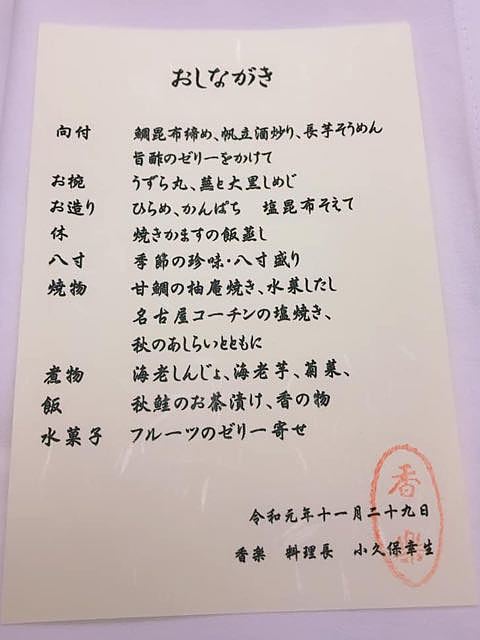 おしながき
向付 鯛昆布締め、帆立酒炒り、長芋そうめん
旨酢のゼリーをかけて
お椀 うずら丸、蕪と大黒しめじ
お造り ひらめ、かんぱち 塩昆布そえて
休 焼きかますの飯蒸し
八寸 季節の珍味・八寸盛り
焼物 甘鯛の柚庵焼き、水菜したし
名古屋コーチンの塩焼き、
秋のあしらいとともに
煮物 海老しんじょ、海老芋、菊菜、
飯 秋鮭のお茶漬け、香の物
水菓子 フルーツのゼリー寄せ
令和元年十一月二十九日
香楽 料理長 小久保幸生
香楽